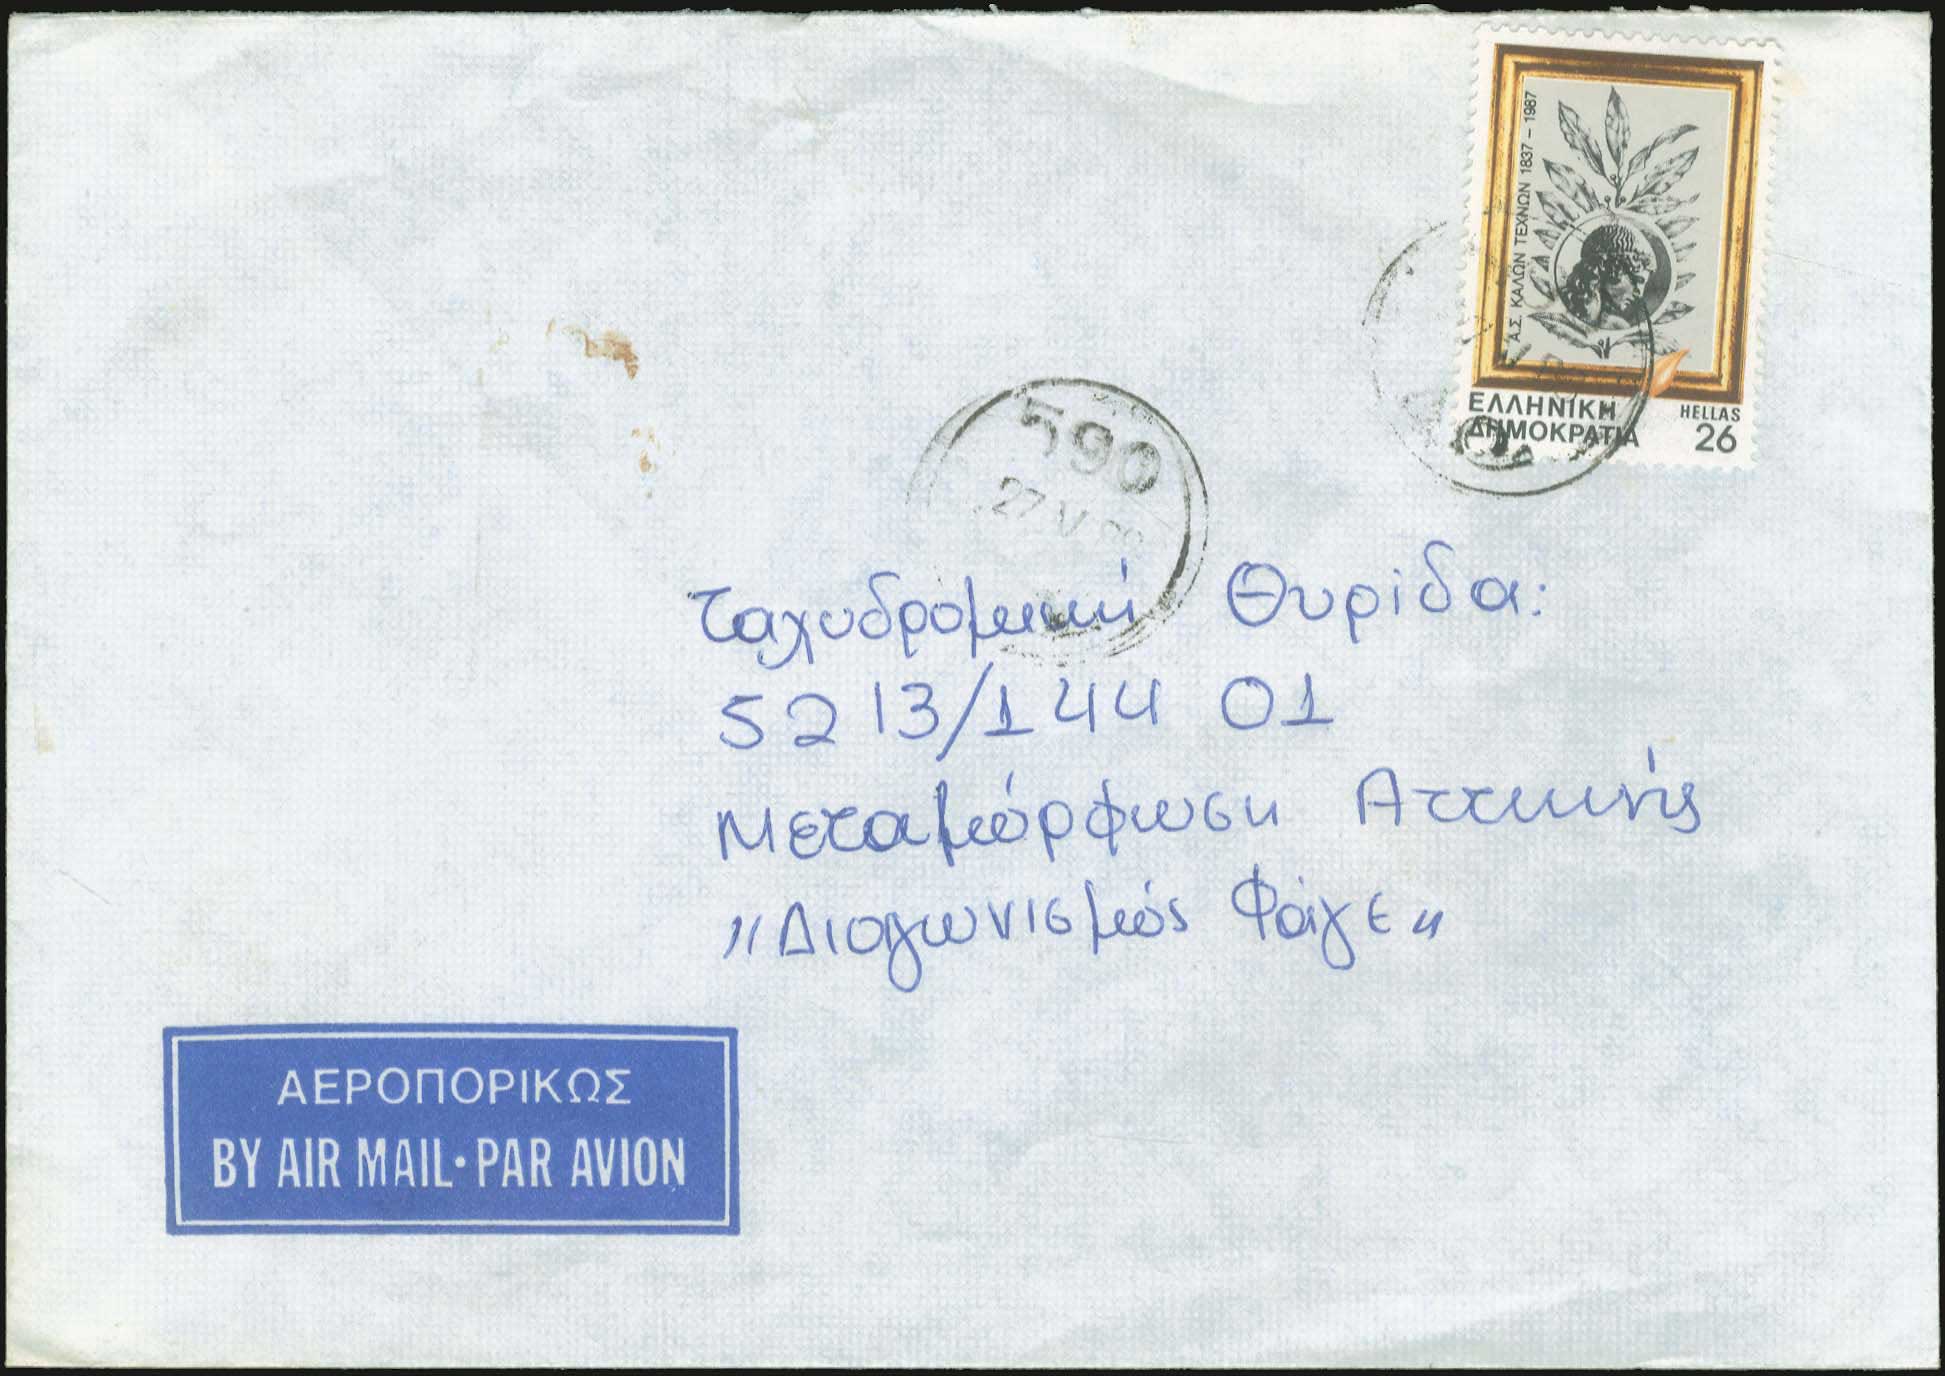 Α.Σ. ΚΑΛΩΝ ΤΕΧΝΩΝ 1837 - 1987
ΕΛΛΗΝΙΚΗ
ΔΗΜΟΚΡΑΤΙΑ
HELLAS
26
590
27 V
Ταχυδρομική Θυρίδα:
5213/144 01
Μεταμόρφωση Αττικής
"Διαγωνισμός Φάγε"
ΑΕΡΟΠΟΡΙΚΩΣ
BY AIR MAIL·PAR AVION